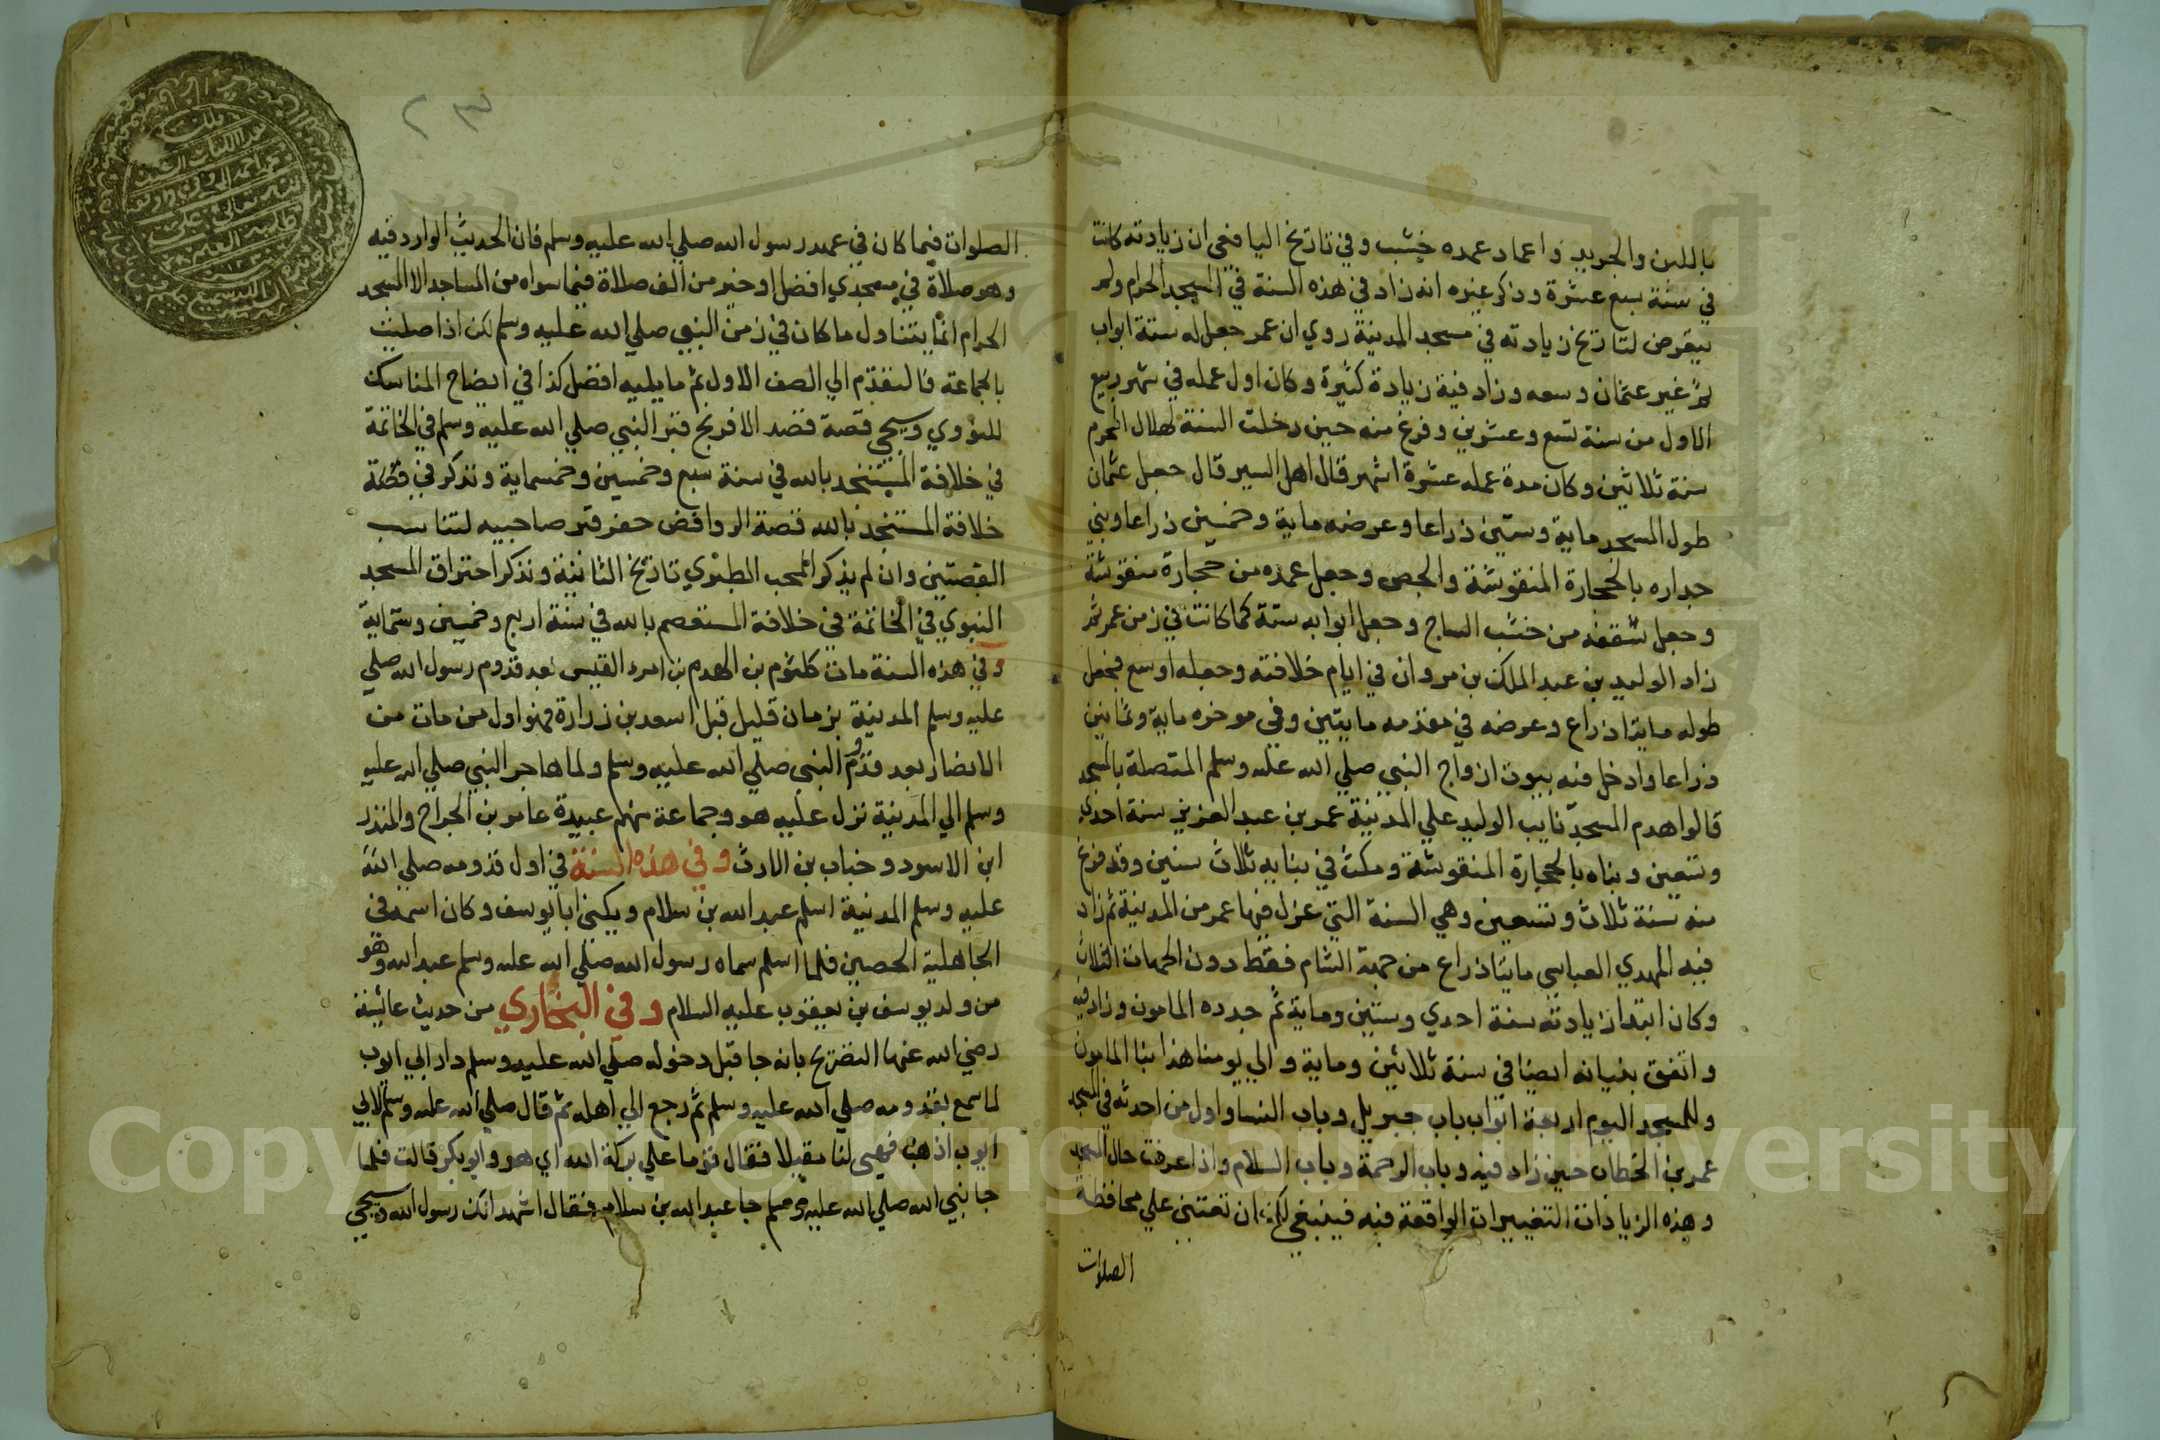 باللبن والجريد واعماد عمده خشب وفي تاريخ اليافعي ان زيادته كانت
في سنة سبع عشرة وذكر غيره انه زاد في هذه السنة في المسجد الحرام ولم
يتعرض لتاريخ زيادته في مسجد المدينة روي ان عمر جعل له ستة ابواب
ثم غير عثمان وسعه وزاد فيه زيادة كثيرة وكان اول عمله في شهر ربيع
الاول من سنة تسع وعشرين وفرغ منه حين دخلت السنة لهلال المحرم
سنة ثلاثين وكان مدة عمله عشرة اشهر قال اهل السير قال جعل عثمان
طول المسجد ماية وستين ذراعا وعرضه ماية وخمسين ذراعا وبني
جداره بالحجارة المنقوشة والجص وجعل عمده من حجارة منقوشة
وجعل سقفه من خشب الساج وجعل ابوابه ستة كما كانت في زمن عمر ثم
زاد الوليد بن عبد الملك بن مروان في ايام خلافته وجعله اوسع فجعل
طوله مايتا ذراع وعرضه في مقدمه مايتين وفي موخره ماية وثمانين
ذراعا وادخل فيه بيوت ازواج النبي صلي الله عليه وسلم المتصلة بالمسجد
قالوا هدم المسجد نايب الوليد علي المدينة عمر بن عبد العزيز سنة احدي
وتسعين وبناه بالحجارة المنقوشة ومكث في بنايه ثلاث سنين وقد فرغ
منه سنة ثلاث وتسعين وهي السنة التي عزل فيها عمر من المدينة ثم زاد
فيه المهدي العباسي مايتا ذراع من جهة الشام فقط دون الجهات الثلاث
وكان ابتدا زيادته سنة احدي وستين وماية ثم جدده المامون وزاد فيه
واتفق بنيانه ايضا في سنة ثلاثين وماية والي يومنا هذا بنا المامون
وللمسجد اليوم اربعة ابواب باب جبريل وباب النسا واول من احدثه في المسجد
عمر بن الخطاب حين زاد فيه وباب الرحمة وباب السلام واذا عرفت حال المسجد
وهذه الزيادات التغييرات الواقعة فيه فينبغي لك ان تعتني علي محافظة
الصلوات
٢٣
الصلوات فيما كان في عهد رسول الله صلي الله عليه وسلم فان الحديث الوارد فيه
وهو صلاة في مسجدي افضل او خير من الف صلاة فيما سواه من المساجد الا المسجد
الحرام انما يتناول ما كان في زمن النبي صلي الله عليه وسلم لكن اذا صليت
بالجماعة فالتقدم الي الصف الاول ثم ما يليه افضل كذا في ايضاح المناسك
للنووي وسيجي قصة قصد الافرنج قبر النبي صلي الله عليه وسلم في الخاتمة
في خلافة المستنجد بالله في سنة سبع وخمسين وخمسماية ونذكر في قصة
خلافة المستنجد بالله قصة الروافض حفر قبر صاحبيه لتناسب
القصتين وان لم يذكر المحب الطبري تاريخ الثانية ونذكر احتراق المسجد
النبوي في الخاتمة في خلافة المستعصم بالله في سنة اربع وخمسين وستماية
وفي هذه السنة مات كلثوم بن الهدم بن امرء القيس بعد قدوم رسول الله صلي
عليه وسلم المدينة بزمان قليل قبل اسعد بن زرارة فهو اول من مات من
الانصار بعد قدوم النبي صلي الله عليه وسلم ولما هاجر النبي صلي الله عليه
وسلم الي المدينة نزل عليه هو وجماعة منهم عبيدة عامر بن الجراح والمنذر
ابن الاسود وخباب بن الارث وفي هذه السنة في اول قدومه صلي الله
عليه وسلم المدينة اسلم عبد الله بن سلام ويكني ابا يوسف وكان اسمه في
الجاهلية الحصين فلما اسلم سماه رسول الله صلي الله عليه وسلم عبد الله وهو
من ولد يوسف بن يعقوب عليه السلام وفي البخاري من حديث عائشة
رضي الله عنها التصريح بانه جا قبل دخوله صلي الله عليه وسلم دار ابي ايوب
لما سمع بقدومه صلي الله عليه وسلم ثم رجع الي اهله ثم قال صلي الله عليه وسلم لابي
ايوب اذهب فهيي لنا مقيلا فقال قوما علي بركة الله اي هو وابو بكر قالت فلما
جا نبي الله صلي الله عليه وسلم جا عبد الله بن سلام فقال اشهد انك رسول الله وسيجي
Copyright © King Saud University